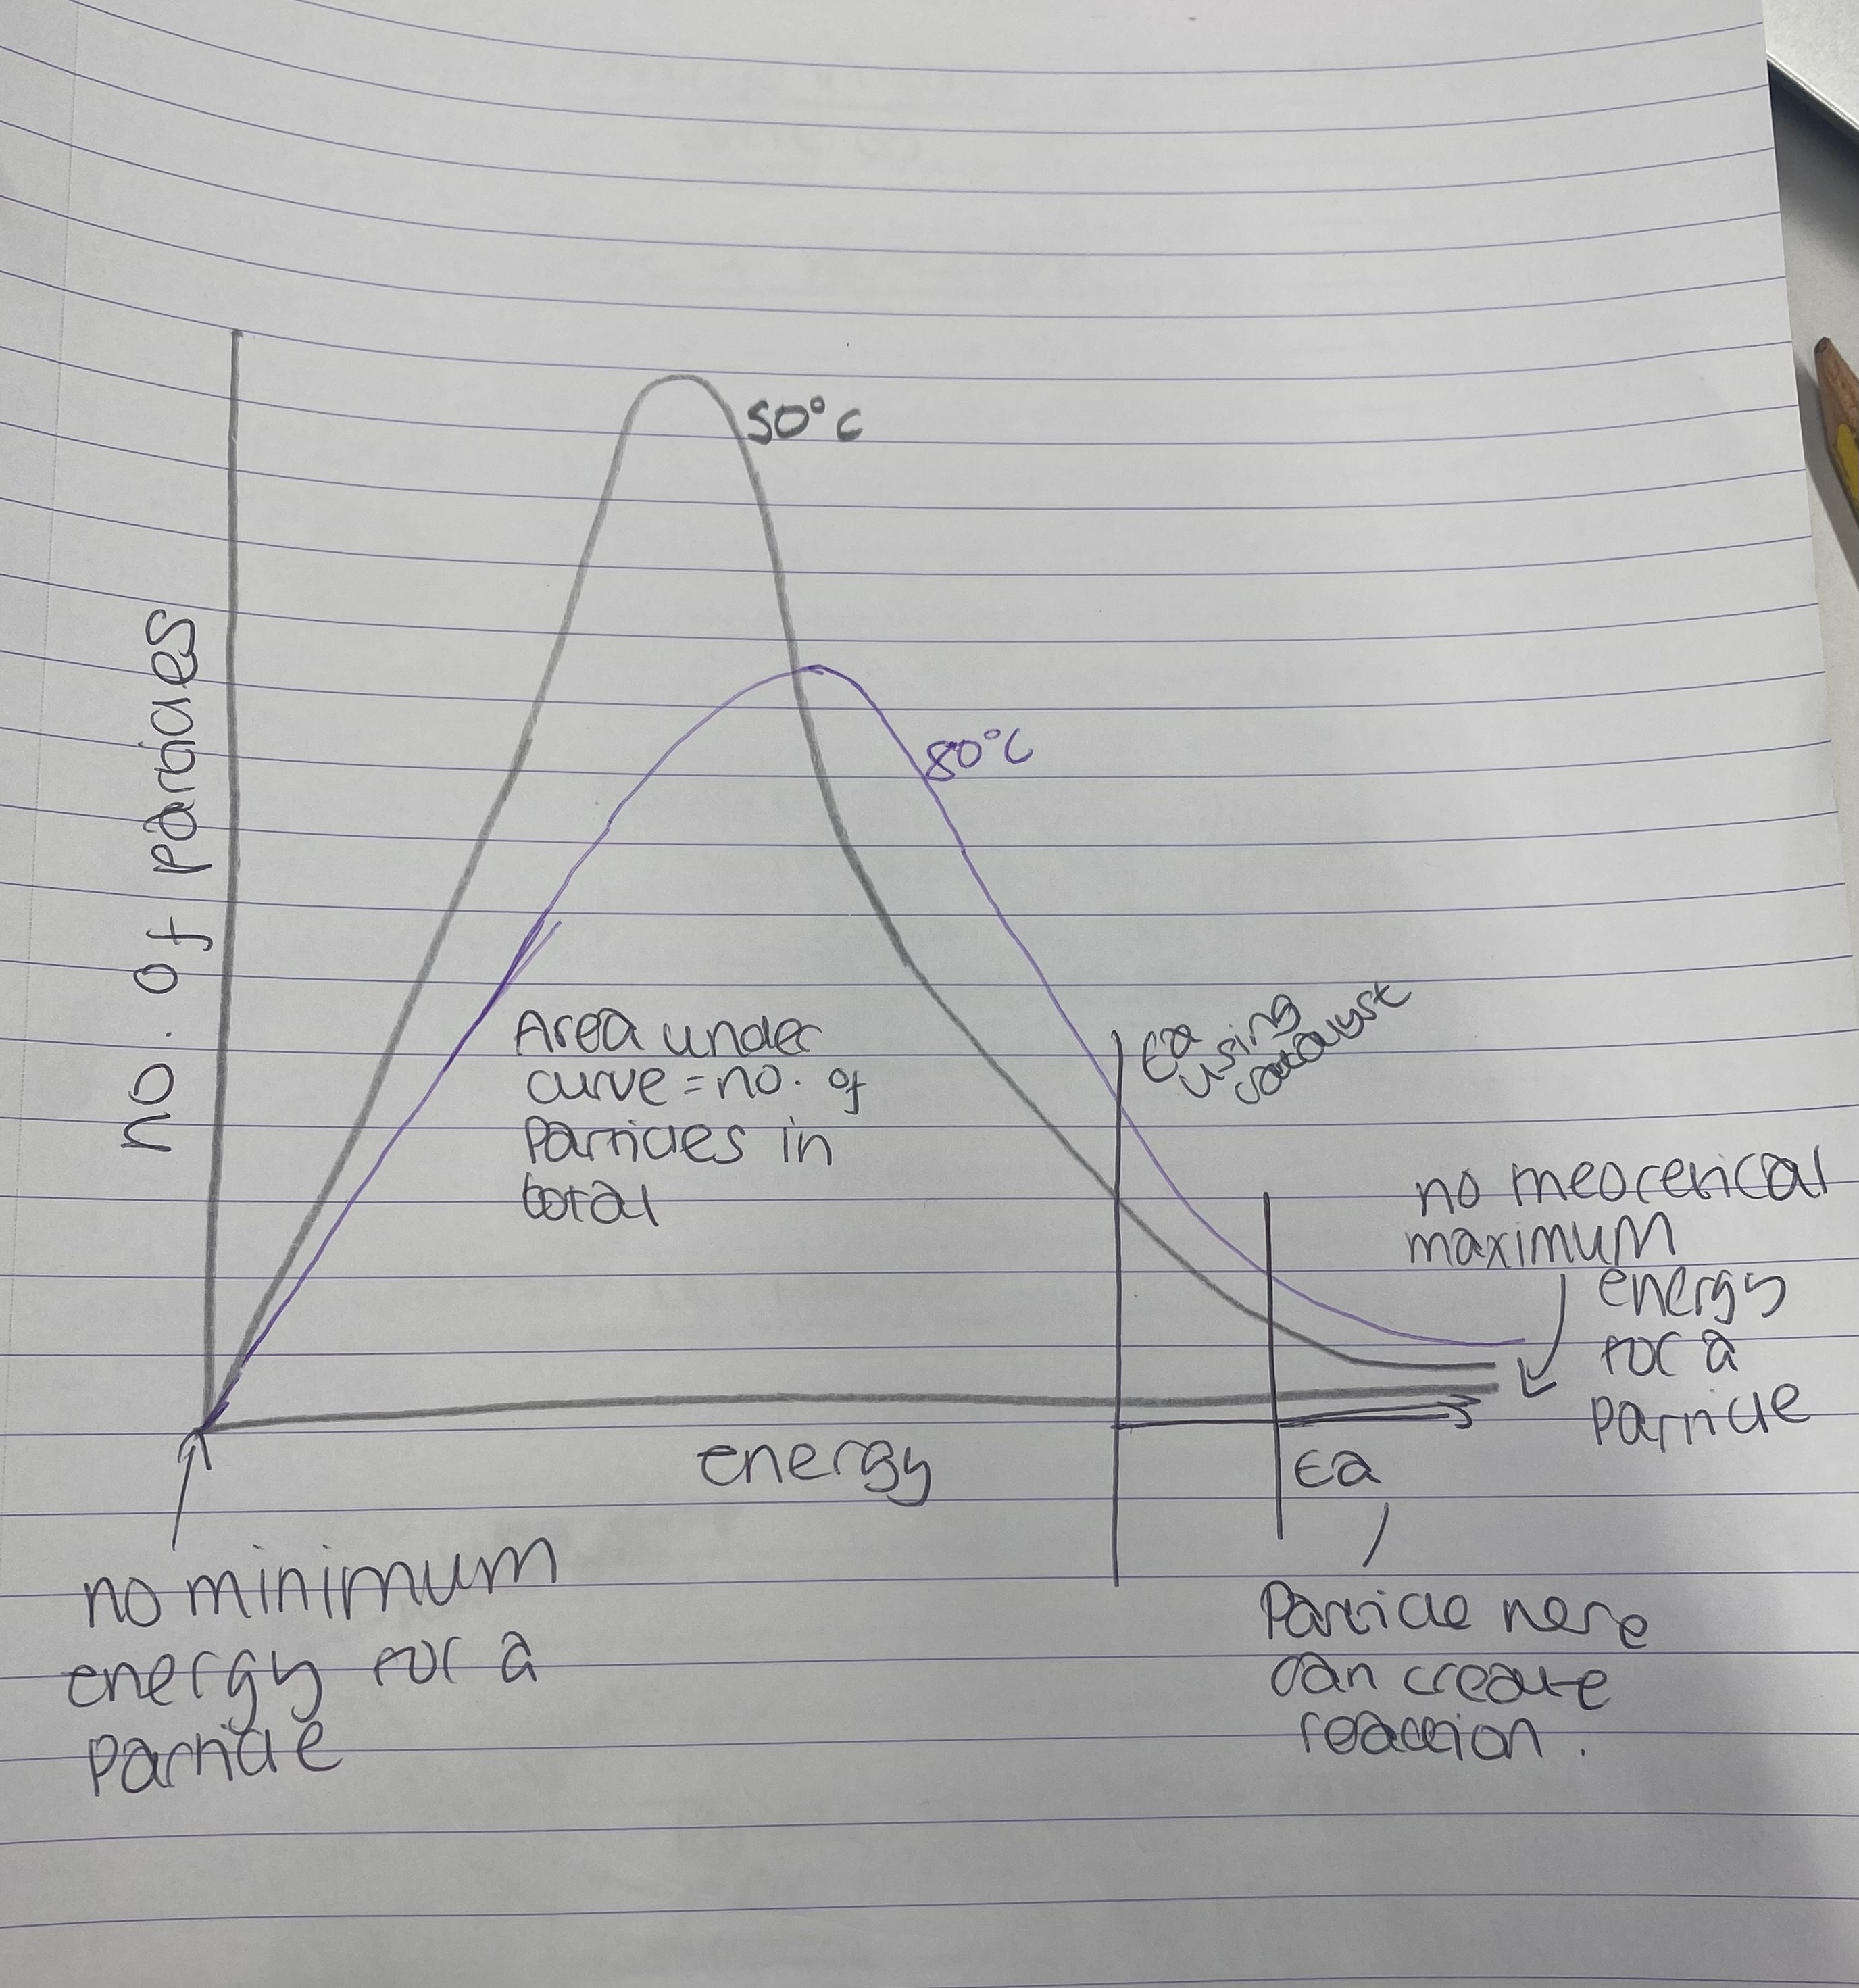 50°C
80°C
no. of particles
Area under
curve = no. of
Particles in
total
Ea
using
catalyst
no theoretical
maximum
energy
for a
particle
energy
Ea
no minimum
energy for a
particle
Particle here
can create
reaction.